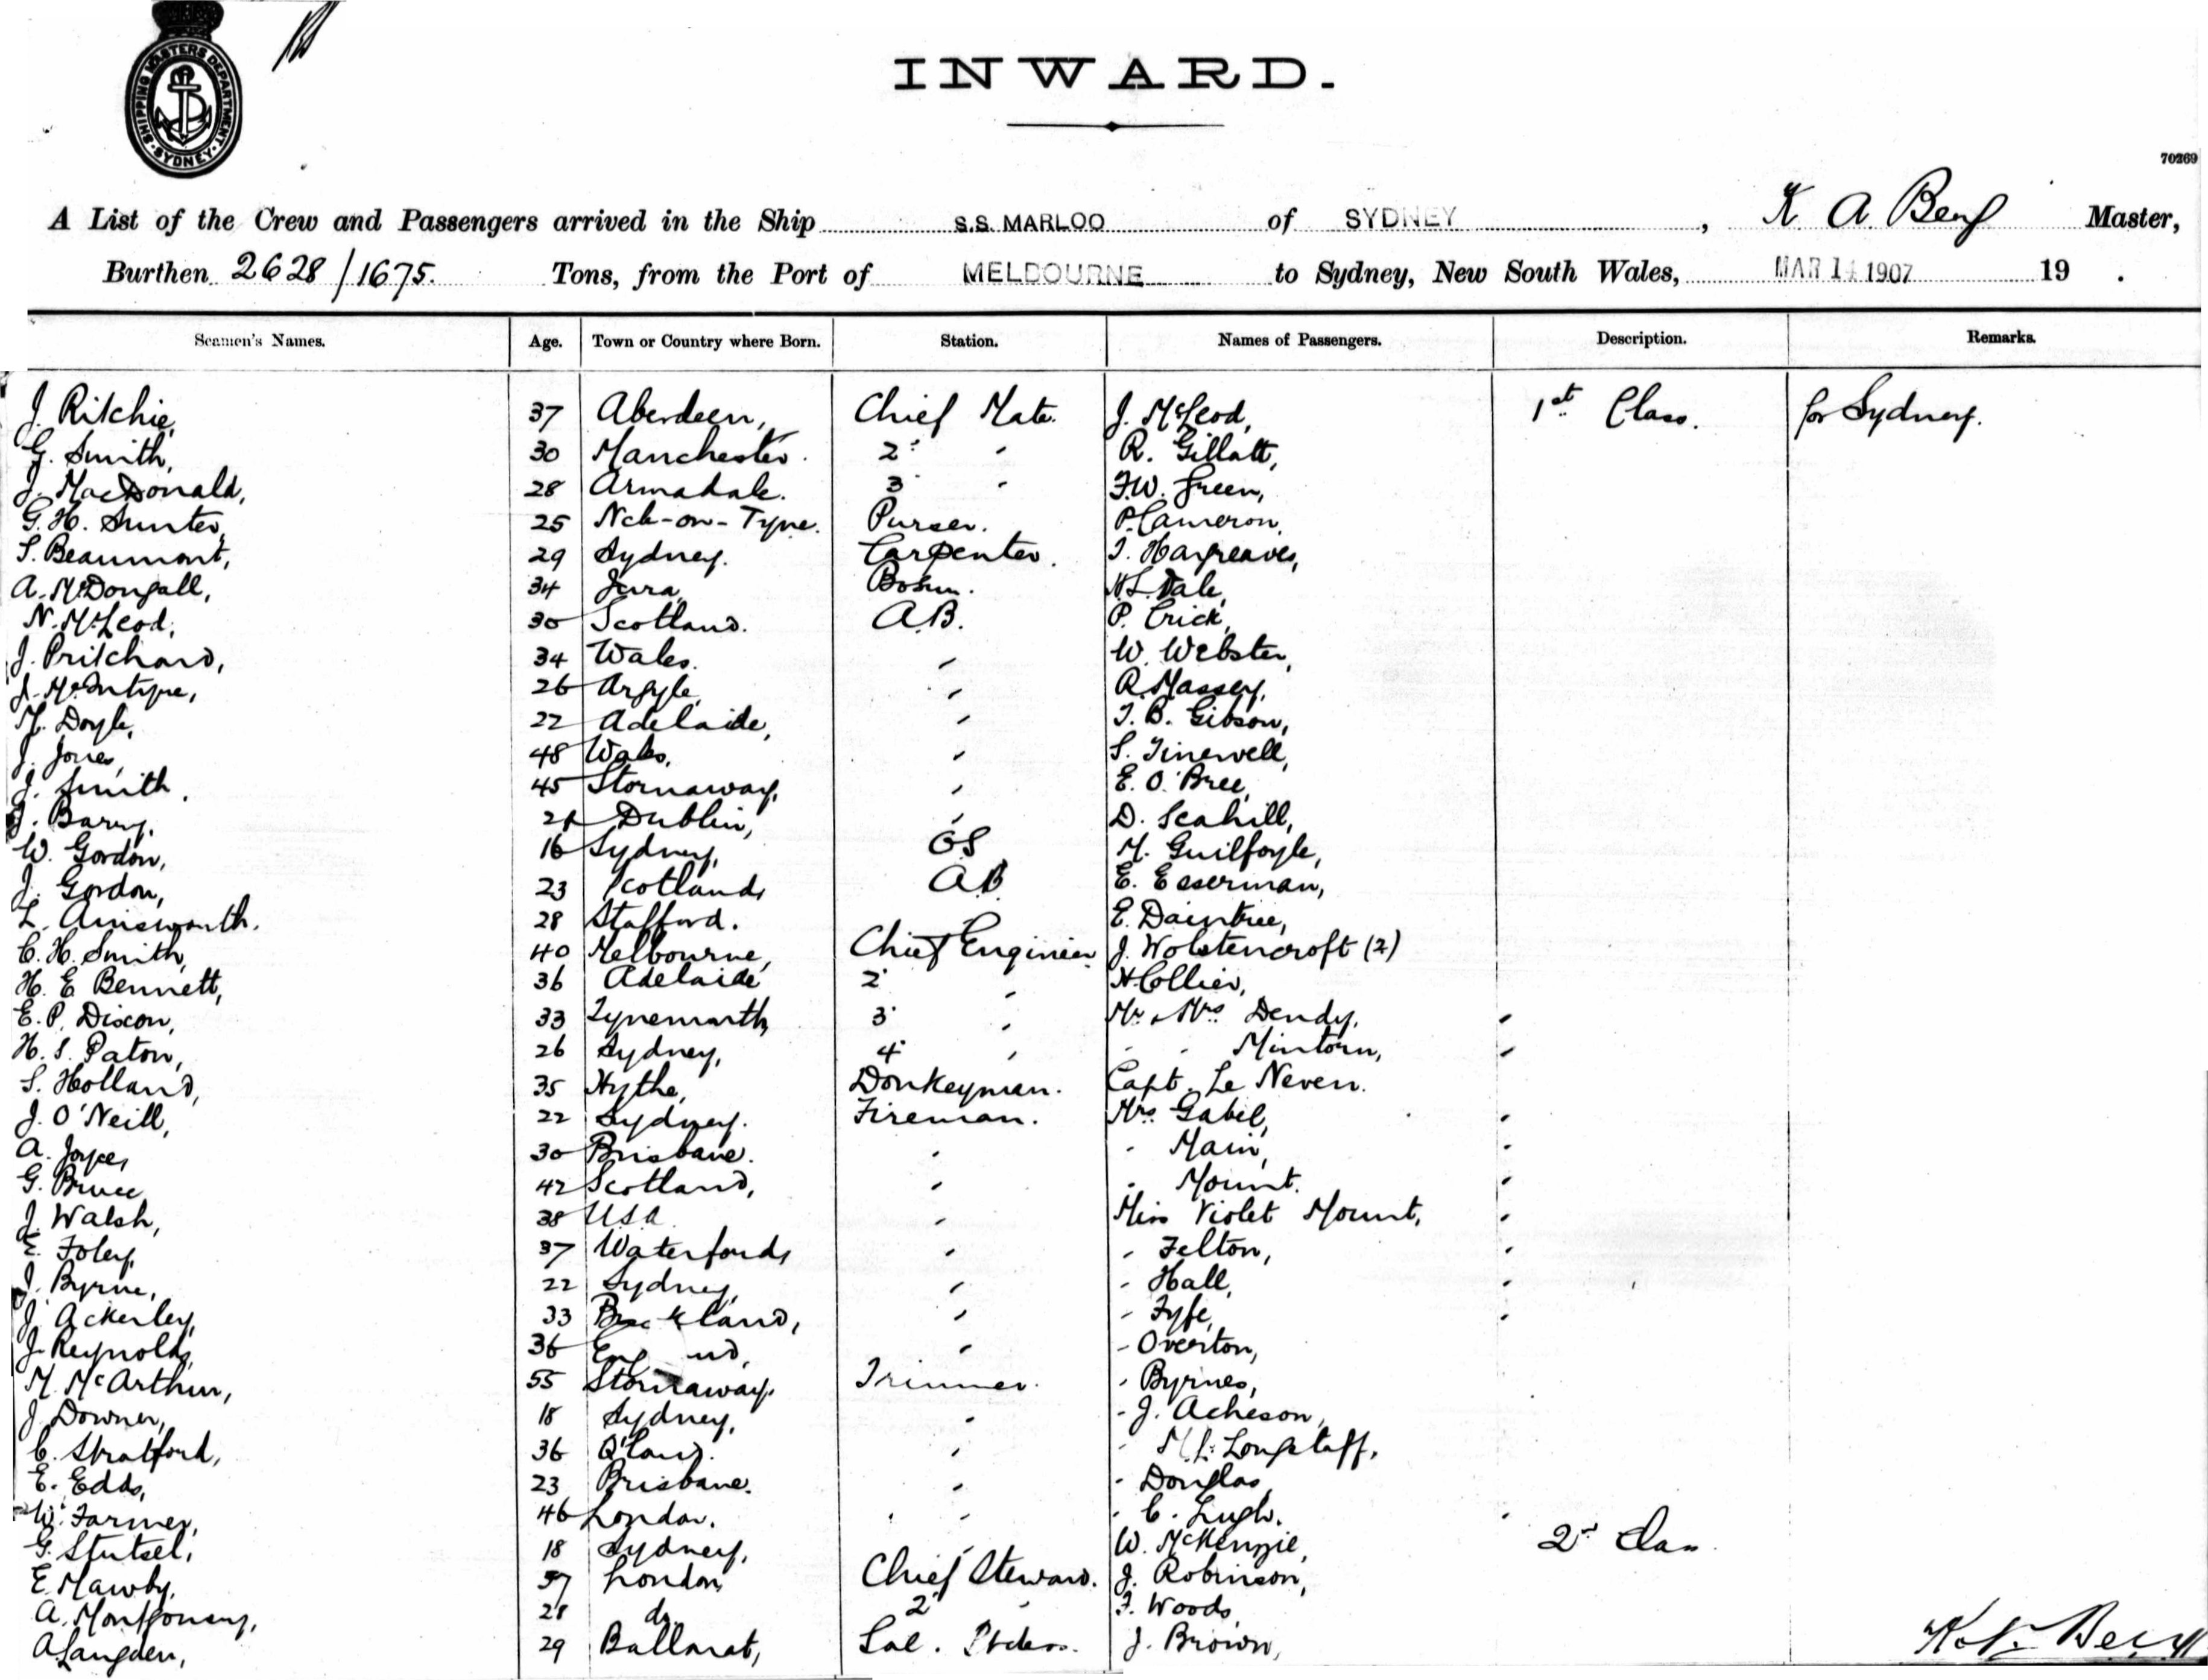 SHIPPING MASTERS DEPARTMENT · SYDNEY ·
INWARD.
70269
A List of the Crew and Passengers arrived in the Ship S.S. MARLOO of SYDNEY, K. A. Berg Master,
Burthen 2628/1675. Tons, from the Port of MELBOURNE to Sydney, New South Wales, MAR 14 1907 19 .
Seamen's Names. Age. Town or Country where Born. Station. Names of Passengers. Description. Remarks.
J. Ritchie, 37 Aberdeen, Chief Mate. J. McLeod, 1st Class. for Sydney.
G. Smith, 30 Manchester. 2 " R. Gillatt,
J. MacDonald, 28 Armadale. 3 " F.W. Green,
G. H. Hunter, 25 Ncle-on-Tyne. Purser. P. Cameron,
S. Beaumont, 29 Sydney. Carpenter. T. Hargreaves,
A. McDougall, 34 Jura, Bosun. H.L. Dale,
N. McLeod, 30 Scotland. A.B. P. Crick,
J. Pritchard, 34 Wales. " W. Webster,
J. McIntyre, 26 Argyle, " R. Massey,
M. Doyle, 22 Adelaide, " T. B. Gibson,
J. Jones, 48 Wales, " S. Tinewell,
J. Smith. 45 Stornaway, " E. O'Bree,
J. Barry. Dublin, " D. Scahill,
W. Gordon, 16 Sydney, OS M. Guilfoyle,
J. Gordon, 23 Scotland, AB E. Esserman,
L. Ainsworth. 28 Stafford. E. Daintree,
C. H. Smith, 40 Melbourne, Chief Engineer J. Wolstencroft (2)
H. E Bennett, 36 Adelaide 2 " H. Collier,
E. P. Dixon, 33 Tynemouth, 3 " Mr & Mrs Dendy, "
H. S. Paton, 26 Sydney, 4 " " " Mintorn, "
S. Holland, 35 Hythe, Donkeyman. Capt. Le Neven.
J. O'Neill, 22 Sydney. Fireman. Mrs Gabel, "
A. Joyce, 30 Brisbane. " " Main, "
G. Bruce, 42 Scotland, " " Mount. "
J. Walsh, 38 U.S.A. " Miss Violet Mount, "
E. Foley, 37 Waterford, " " Felton, "
J. Byrne, 22 Sydney, " " Hall, "
J. Ackerley, 33 " " Fyfe, "
J. Reynolds, 36 England, " " Overton,
M. McArthur, 55 Stornaway. Trimmer. " Byrnes,
J. Downer, 18 Sydney, " " J. Acheson,
C. Stratford, 36 Q'land. " " Longstaff,
E. Edds, 23 Brisbane. " " Douglas,
W. Farmer, 46 London. " " C. "
G. Stutsel, 18 Sydney, " W. McKenzie, 2nd Class
E. Mawby, London, Chief Steward. J. Robinson,
A. Montgomery, do. 2 " F. Woods,
A. Langden, 29 Ballarat, Sal. J. Brown,